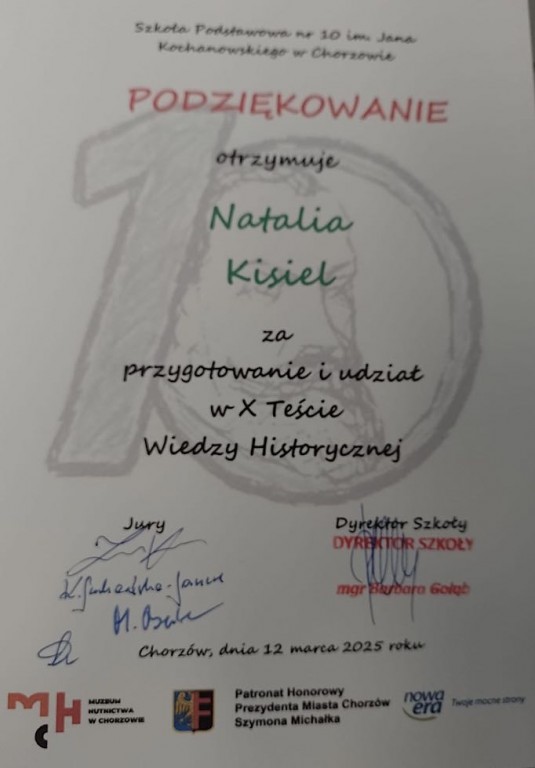 Szkoła Podstawowa nr 10 im. Jana
Kochanowskiego w Chorzowie
PODZIĘKOWANIE
otrzymuje
Natalia
Kisiel
za
przygotowanie i udział
w X Teście
Wiedzy Historycznej
Jury
Dyrektor Szkoły
DYREKTOR SZKOŁY
mgr Barbara Gołąb
Chorzów, dnia 12 marca 2025 roku
MCH
MUZEUM
HUTNICTWA
W CHORZOWIE
Patronat Honorowy
Prezydenta Miasta Chorzów
Szymona Michałka
nowa
era
Twoje mocne strony